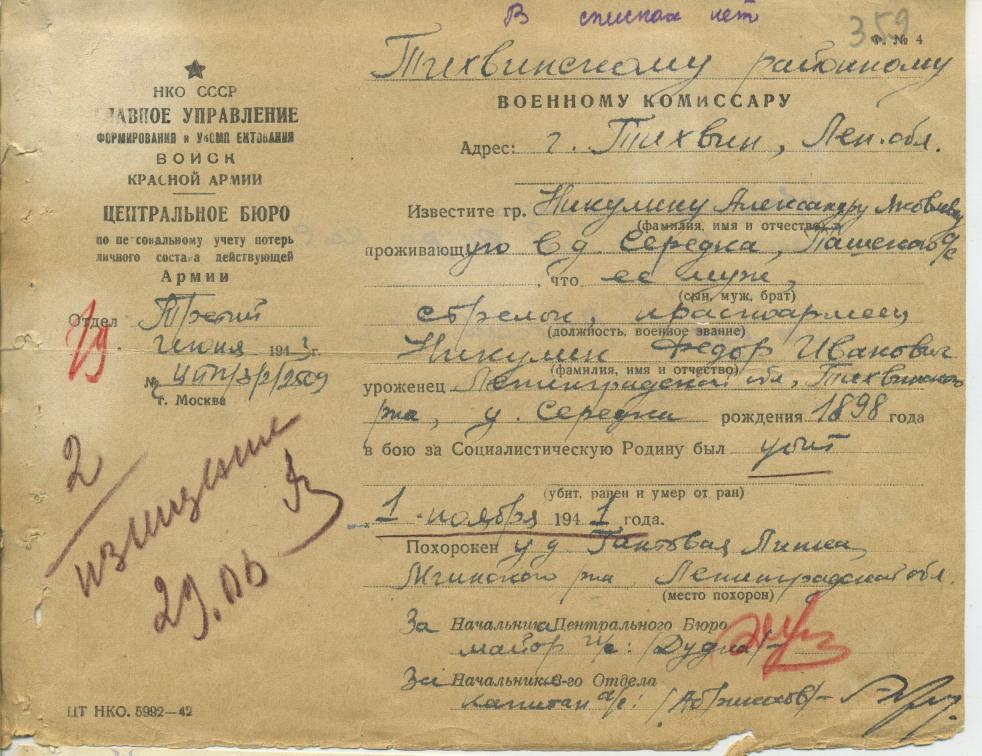 В списках нет
359
Ф. № 4
Тихвинскому районному
ВОЕННОМУ КОМИССАРУ
Адрес: г. Тихвин, Лен. обл.
НКО СССР
ГЛАВНОЕ УПРАВЛЕНИЕ
ФОРМИРОВАНИЯ и УКОМПЛЕКТОВАНИЯ
ВОЙСК
КРАСНОЙ АРМИИ
ЦЕНТРАЛЬНОЕ БЮРО
по персональному учету потерь
личного состава действующей
Армии
Отдел Третий
июня 1943 г.
г. Москва
Известите гр. Никулину Александру Яковлевну
(фамилия, имя и отчество)
проживающую в д. Середка, Пашского с/с
, что ее муж,
(сын, муж, брат)
стрелок, красноармеец
(должность, военное звание)
Никулин Федор Иванович
(фамилия, имя и отчество)
уроженец Ленинградской обл, Тихвинского
р-на, д. Середка рождения 1898 года
в бою за Социалистическую Родину был убит
(убит, ранен и умер от ран)
1 ноября 1941 года.
Похоронен у д. Гонтовая Липка
Мгинского р-на Ленинградской обл.
(место похорон)
За Начальника Центрального Бюро
майор и/с: /Дудка/
За Начальника 3-го Отдела
капитан а/с:
2
извещение
29.06
ЦТ НКО. 5992—42